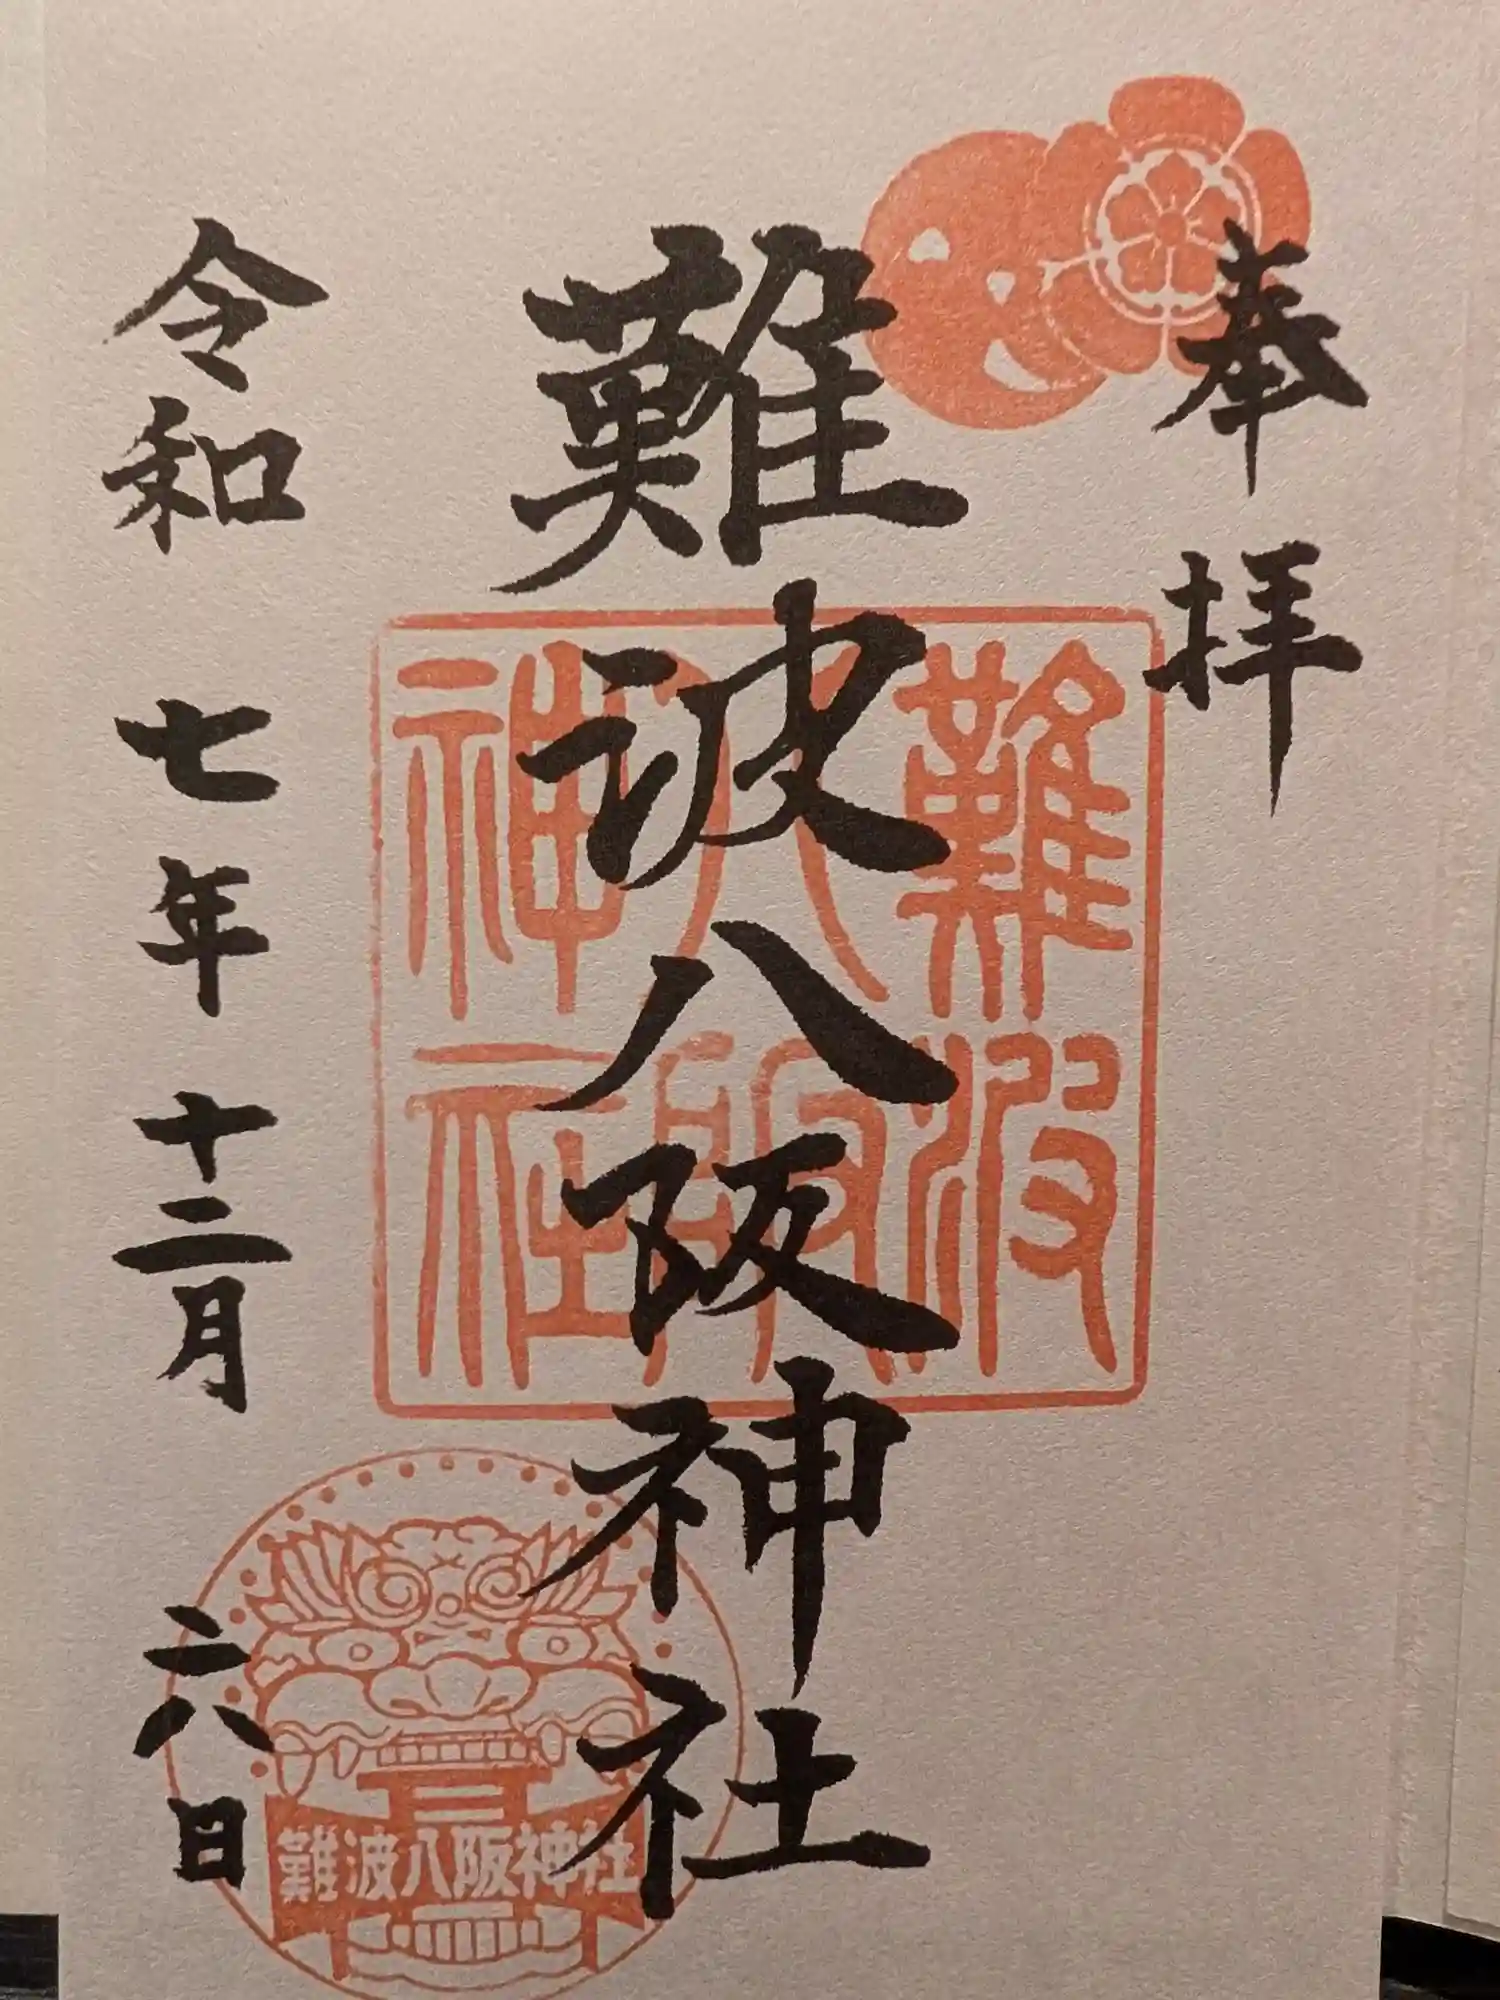 奉拝
難波八阪神社
令和七年十二月六日
難波
八阪
神社
難波八阪神社